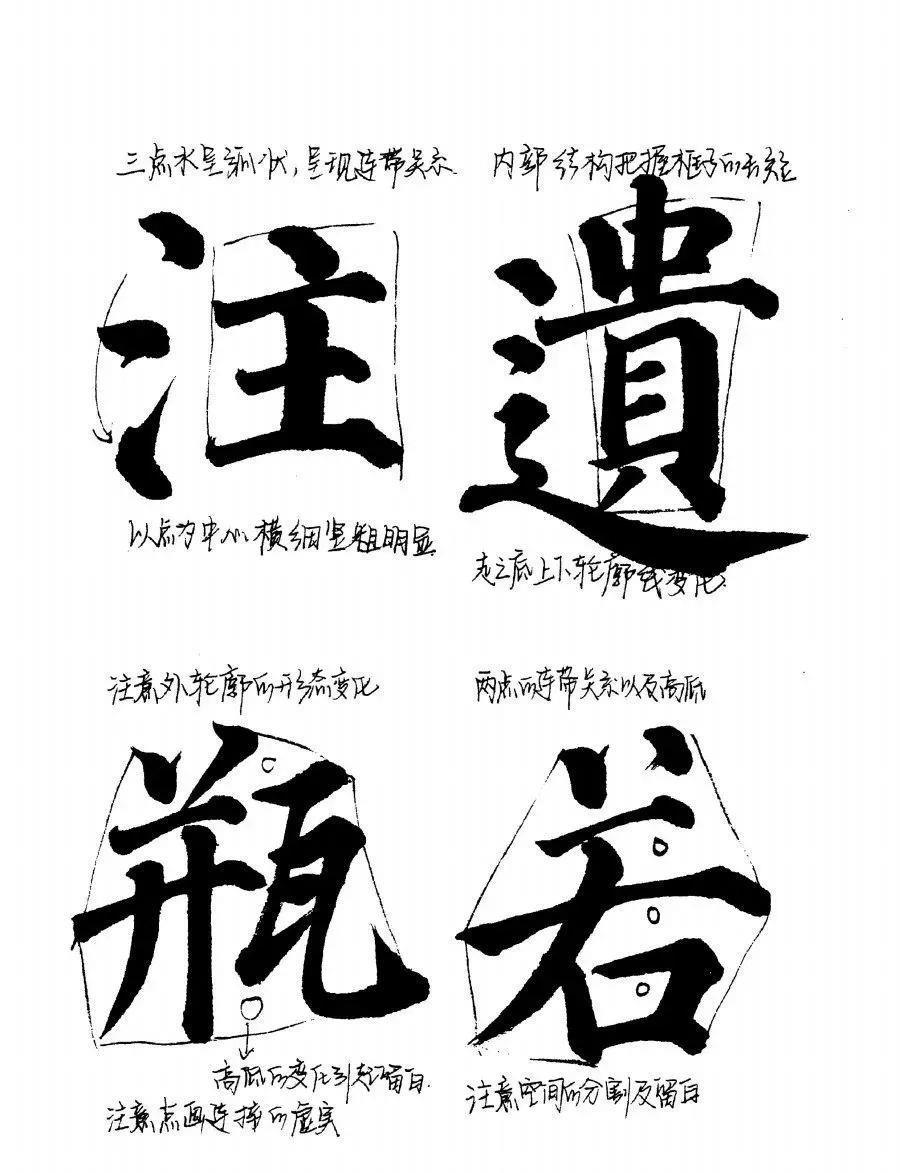 三点水呈弧状，呈现连带关系
注
以点为中心，横细竖粗明显
内部结构把握框子的
遺
走之底上下轮廓线变化
注意外轮廓的形态变化
瓶
高低的变化引起留白
注意点画连接的虚实
两点的连带关系以及高低
若
注意空间的分割及留白